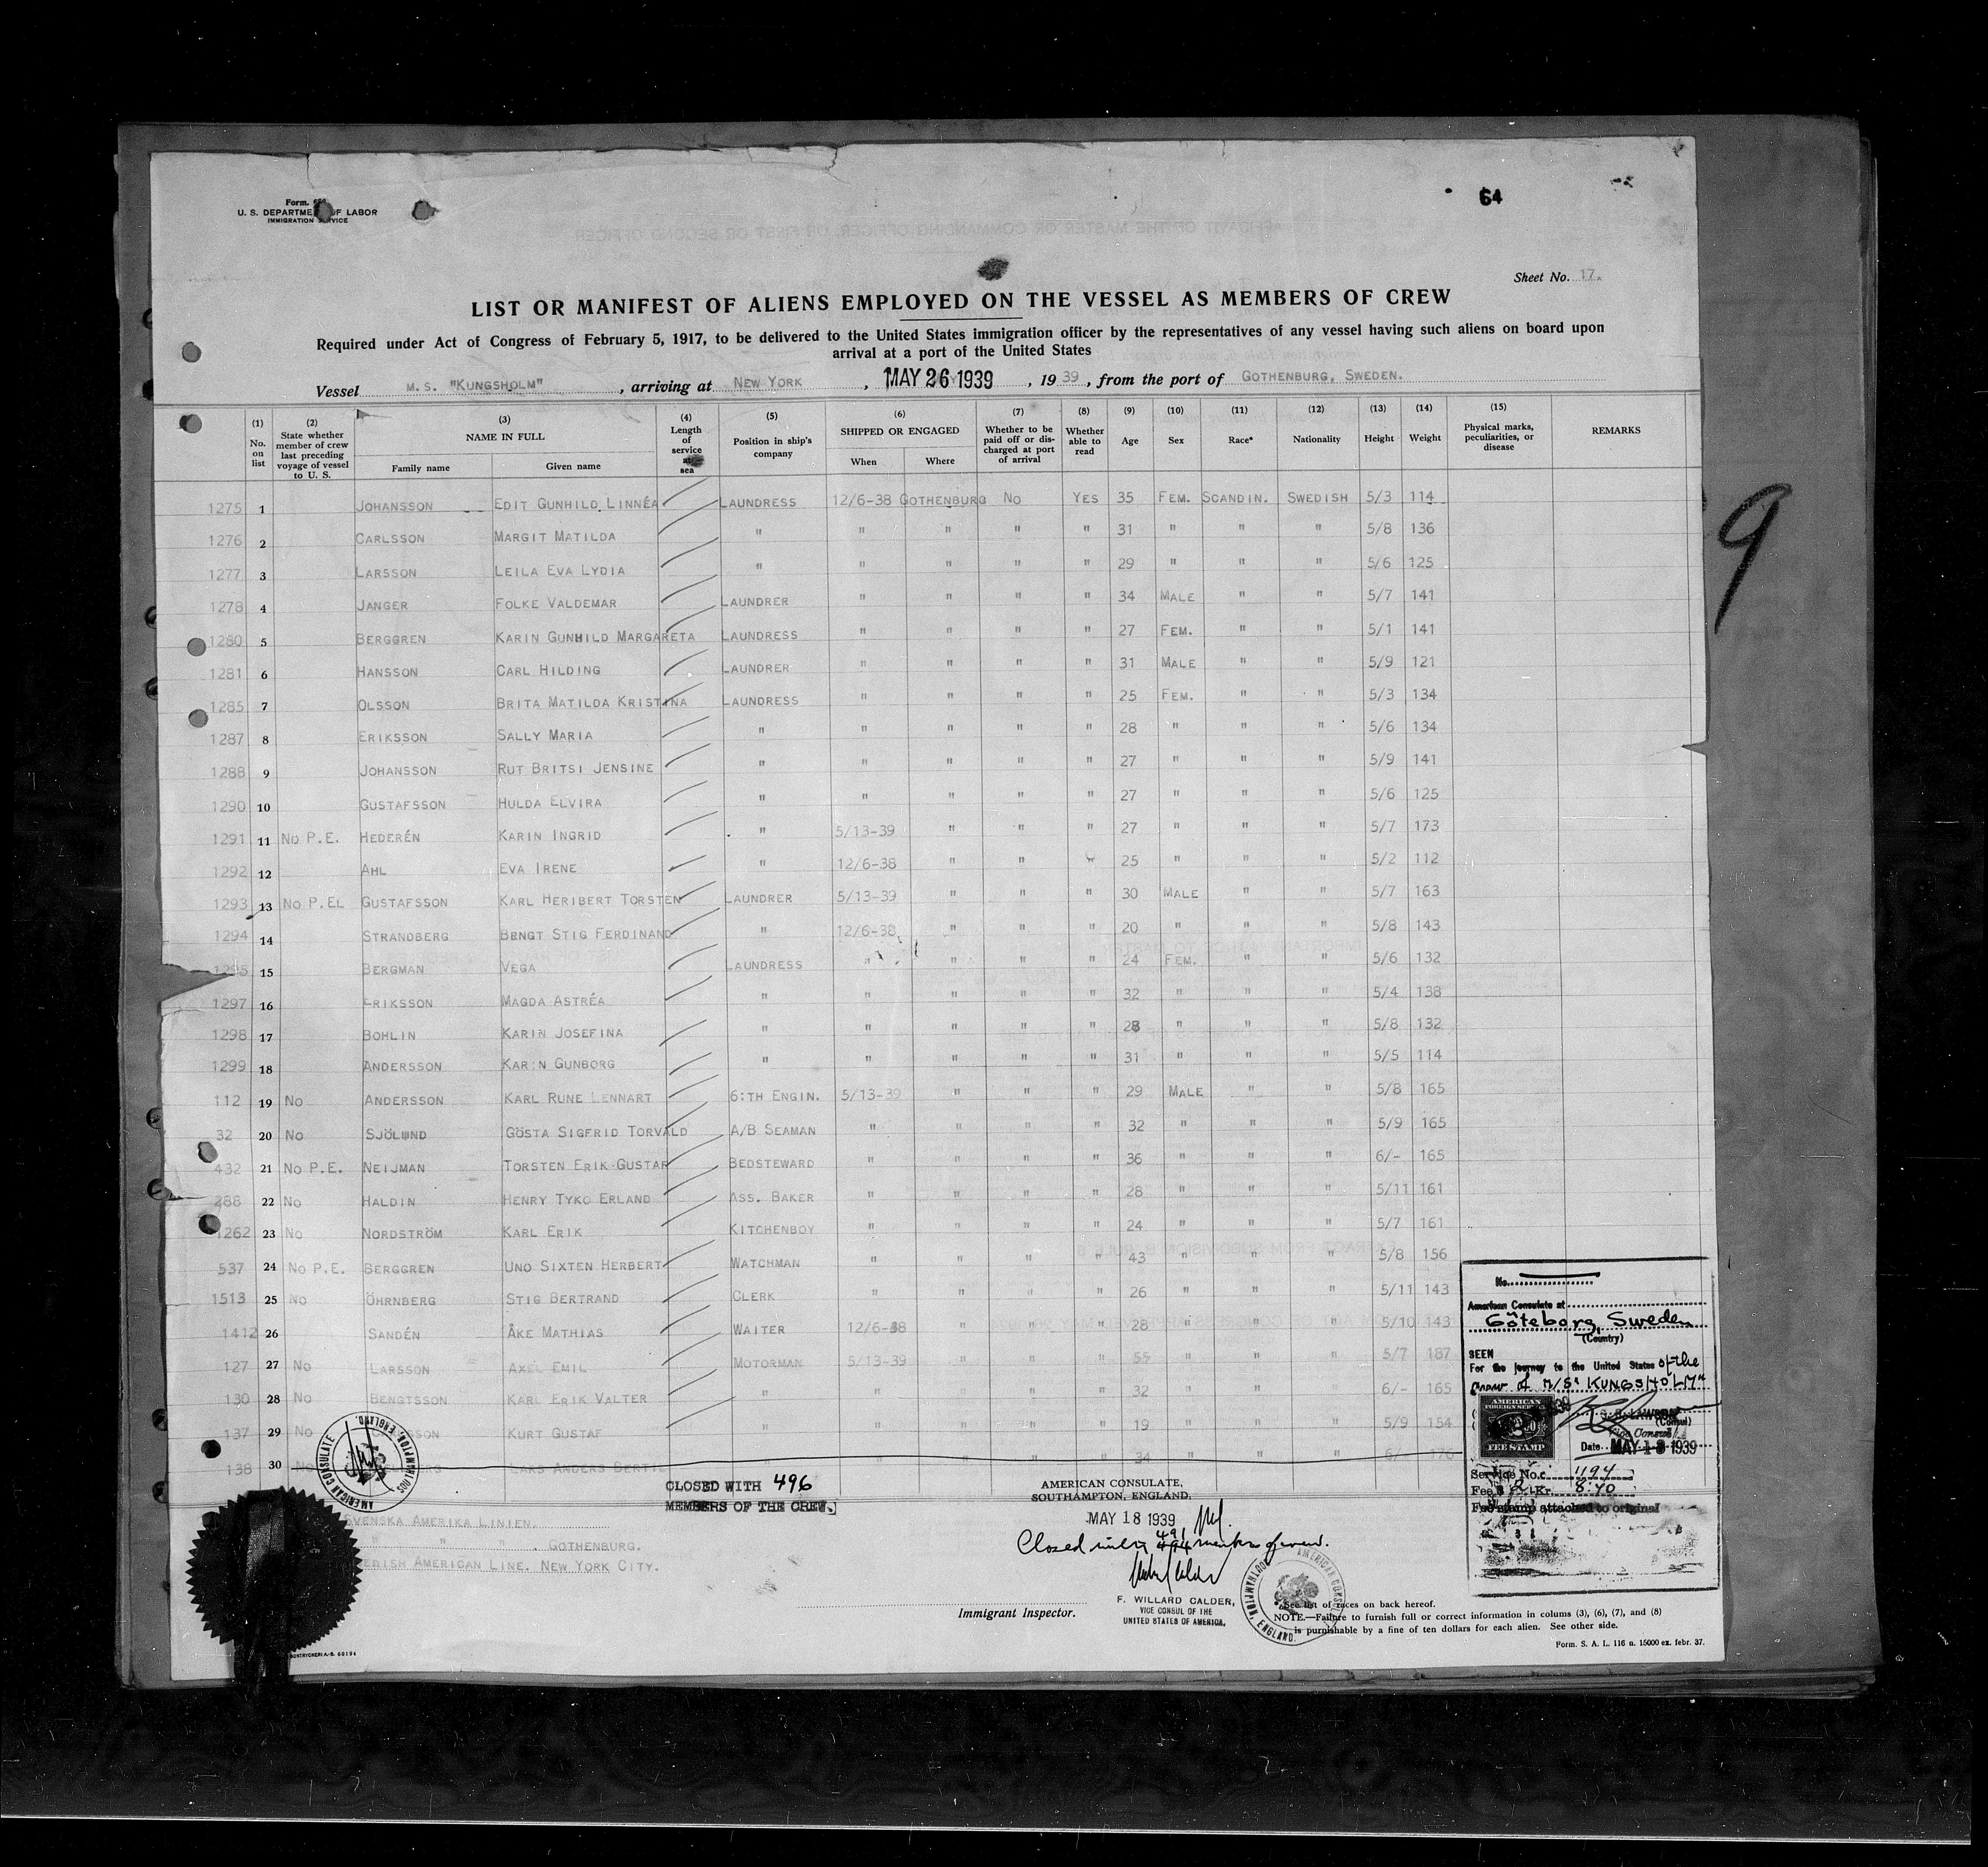 64
Form.
U. S. DEPARTMENT OF LABOR
IMMIGRATION SERVICE
Sheet No. 17.
LIST OR MANIFEST OF ALIENS EMPLOYED ON THE VESSEL AS MEMBERS OF CREW
Required under Act of Congress of February 5, 1917, to be delivered to the United States immigration officer by the representatives of any vessel having such aliens on board upon
arrival at a port of the United States
Vessel M.S. "KUNGSHOLM", arriving at NEW YORK, MAY 26 1939, 1939, from the port of GOTHENBURG, SWEDEN.
(1) No. on list (2) State whether member of crew last preceding voyage of vessel to U. S. (3) NAME IN FULL Family name Given name (4) Length of service at sea (5) Position in ship's company (6) SHIPPED OR ENGAGED When Where (7) Whether to be paid off or discharged at port of arrival (8) Whether able to read (9) Age (10) Sex (11) Race* (12) Nationality (13) Height (14) Weight (15) Physical marks, peculiarities, or disease REMARKS
1275 1 JOHANSSON EDIT GUNHILD LINNÉA LAUNDRESS 12/6-38 GOTHENBURG NO YES 35 FEM. SCANDIN. SWEDISH 5/3 114
1276 2 CARLSSON MARGIT MATILDA " " " " " 31 " " " 5/8 136
1277 3 LARSSON LEILA EVA LYDIA " " " " " 29 " " " 5/6 125
1278 4 JANGER FOLKE VALDEMAR LAUNDRER " " " " 34 MALE " " 5/7 141
1280 5 BERGGREN KARIN GUNHILD MARGARETA LAUNDRESS " " " " 27 FEM. " " 5/1 141
1281 6 HANSSON CARL HILDING LAUNDRER " " " " 31 MALE " " 5/9 121
1285 7 OLSSON BRITA MATILDA KRISTINA LAUNDRESS " " " " 25 FEM. " " 5/3 134
1287 8 ERIKSSON SALLY MARIA " " " " " 28 " " " 5/6 134
1288 9 JOHANSSON RUT BRITSI JENSINE " " " " " 27 " " " 5/9 141
1290 10 GUSTAFSSON HULDA ELVIRA " " " " " 27 " " " 5/6 125
1291 11 NO P.E. HEDERÉN KARIN INGRID " 5/13-39 " " " 27 " " " 5/7 173
1292 12 AHL EVA IRENE " 12/6-38 " " " 25 " " " 5/2 112
1293 13 NO P.EL GUSTAFSSON KARL HERIBERT TORSTEN LAUNDRER 5/13-39 " " " 30 MALE " " 5/7 163
1294 14 STRANDBERG BENGT STIG FERDINAND " 12/6-38 " " " 20 " " " 5/8 143
1295 15 BERGMAN VEGA LAUNDRESS " " " " 24 FEM. " " 5/6 132
1297 16 ERIKSSON MAGDA ASTRÉA " " " " " 32 " " " 5/4 138
1298 17 BOHLIN KARIN JOSEFINA " " " " " 28 " " " 5/8 132
1299 18 ANDERSSON KARIN GUNBORG " " " " " 31 " " " 5/5 114
112 19 NO ANDERSSON KARL RUNE LENNART 6:TH ENGIN. 5/13-39 " " " 29 MALE " " 5/8 165
32 20 NO SJÖLUND GÖSTA SIGFRID TORVALD A/B SEAMAN " " " " 32 " " " 5/9 165
432 21 NO P.E. NEIJMAN TORSTEN ERIK GUSTAF BEDSTEWARD " " " " 36 " " " 6/- 165
288 22 NO HALDIN HENRY TYKO ERLAND ASS. BAKER " " " " 28 " " " 5/11 161
1262 23 NO NORDSTRÖM KARL ERIK KITCHENBOY " " " " 24 " " " 5/7 161
537 24 NO P.E. BERGGREN UNO SIXTEN HERBERT WATCHMAN " " " " 43 " " " 5/8 156
1513 25 NO ÖHRNBERG STIG BERTRAND CLERK " " " " 26 " " " 5/11 143
1412 26 SANDÉN ÅKE MATHIAS WAITER 12/6-38 " " " 28 " " " 5/10 143
127 27 NO LARSSON AXEL EMIL MOTORMAN 5/13-39 " " " 55 " " " 5/7 187
130 28 NO BENGTSSON KARL ERIK VALTER " " " " " 32 " " " 6/- 165
137 29 NO KURT GUSTAF " " " " " 19 " " " 5/9 154
138 30 NO LARS ANDERS BERTIL " " " " 34 " " " 6/ 176
9
No.
American Consulate at
Göteborg, Sweden
(Country)
SEEN
For the journey to the United States of the
crew of M/S "KUNGSHOLM"
AMERICAN
FOREIGN SERVICE
FEE STAMP
(Consul)
Vice Consul
Date MAY 13 1939
Service No. 1194
Fee $ 2 Kr. 8.40
Fee stamp attached to original
AMERICAN CONSULATE SOUTHAMPTON, ENGLAND.
CLOSED WITH 496
MEMBERS OF THE CREW.
AMERICAN CONSULATE,
SOUTHAMPTON, ENGLAND.
MAY 18 1939
491
Closed with 494 members of crew.
F. WILLARD CALDER,
VICE CONSUL OF THE
UNITED STATES OF AMERICA.
AMERICAN CONSULATE SOUTHAMPTON, ENGLAND.
SVENSKA AMERIKA LINIEN.
" " " , GOTHENBURG.
SWEDISH AMERICAN LINE. NEW YORK CITY.
Immigrant Inspector.
*See list of races on back hereof.
NOTE.—Failure to furnish full or correct information in colums (3), (6), (7), and (8)
is purnishable by a fine of ten dollars for each alien. See other side.
Form. S. A. L. 116 n. 15000 ex. febr. 37.